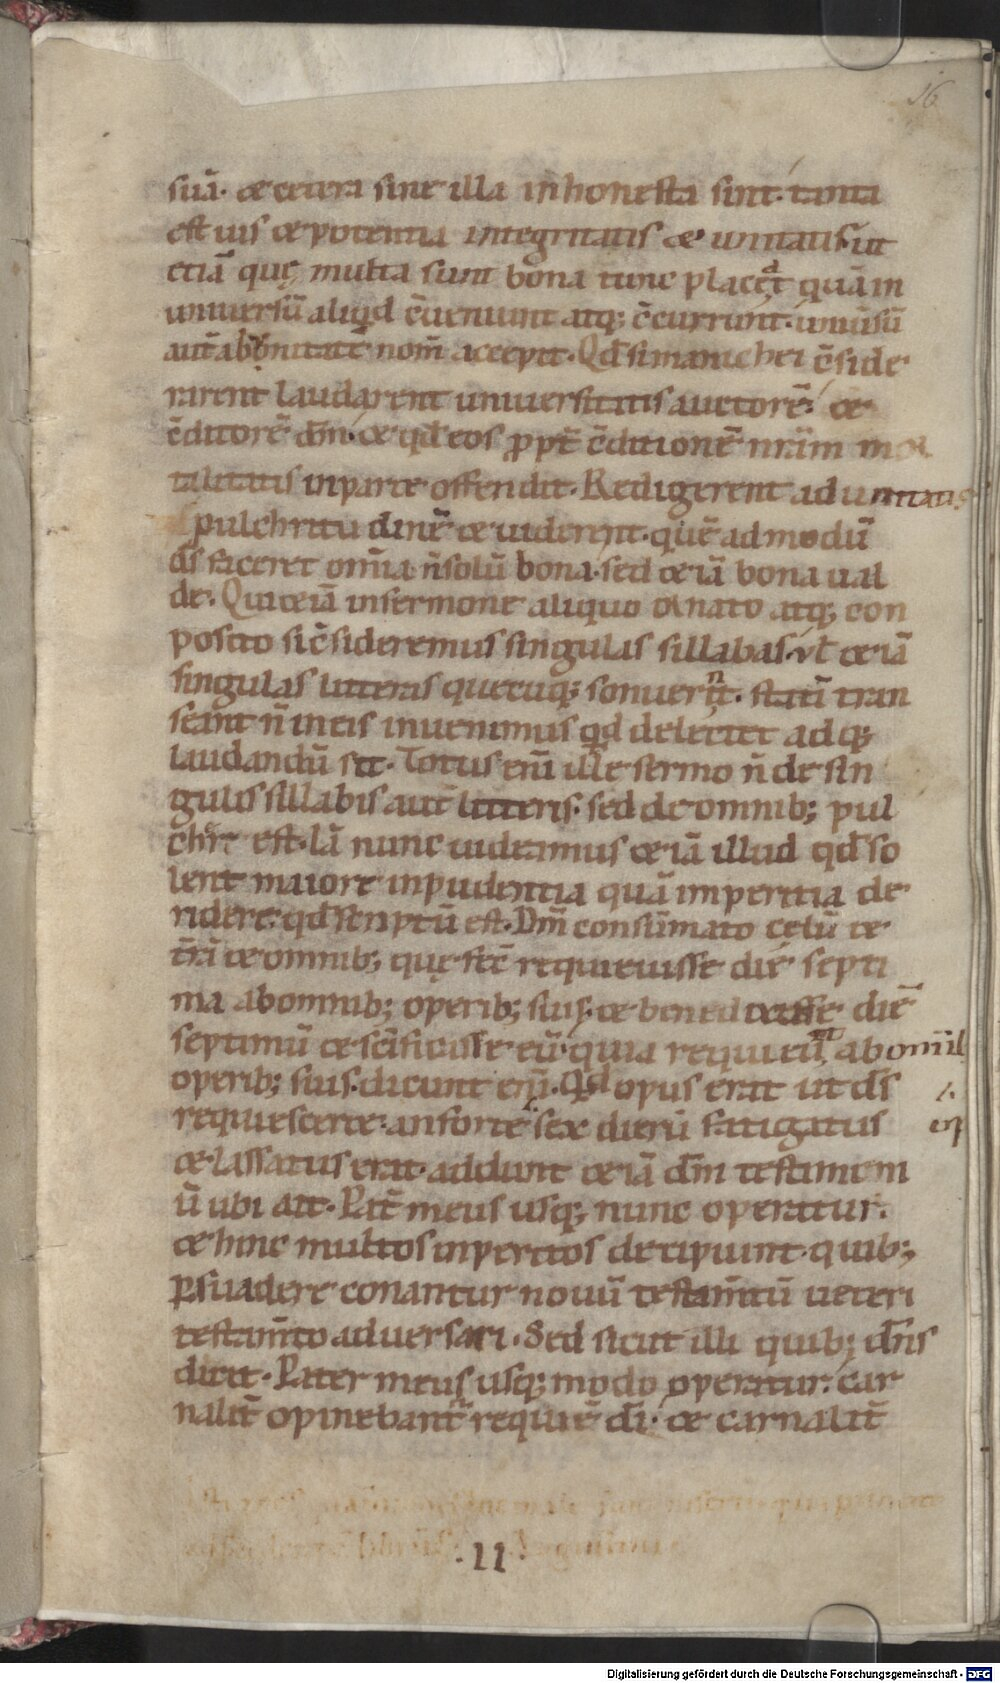 16
suā. & cetera sine illa inhonesta sint. tanta
est uis & potentia integritatis & unitatis. ut
etiā quę multa sunt bona tunc placēt quā in
uniuersū aliqd c̄ueniunt atq; c̄currunt. uniūsū
aut̄ ab unitate nom̄ accepit. Qd̄ si manichei c̄side
rarent laudarent uniuersitatis auctorē. &
c̄ditorē dm̄. & qd̄ eos ꝓpt̄ c̄ditionē nr̄am mor
talitatis in parte offendit. Redigerent ad unitatis
pulchritudinē & uiderent. quē ad modū
ds̄ faceret om̄ia n̄ solū bona. sed &iā bona ual
de. Qui &iā in sermone aliquo ornato atq; con
posito si c̄sideremus singulas sillabas. ul̄ &iā
singulas litteras que cūq; sonuerint. statī tran
seant n̄ in eis inuenimus qd delectet ad q;
laudandū sit. Totus enī ille sermo n̄ de sin
gulis sillabis aut litteris. sed de omnib; pul
cher est. Iā nunc uideamus &iā illud qd̄ so
lent maiore inpudentia quā imperitia de
ridere. qd̄ scriptū est. Dm̄ consūmato cęlū &
t̄rā & omnib; quę fec̄ requieuisse die septi
ma ab omnib; operib; suis. & benedixisse diē
septimū & sc̄ificasse eū. quia requieuit ab omīb
operib; suis. dicunt enī. Qd opus erat ut ds̄
requiescer&. an forte sex dierū fatigatus
& lassatus erat. addunt &iā dm̄ testimoni
ū ubi ait. Pat̄ meus usq; nunc operatur.
& hinc multos inperitos decipiunt. quib;
ꝑsuadere conantur nouū testam̄tū ueteri
testam̄to aduersari. Sed sicut illi quib; dn̄s
dicit. Pater meus usq; modo operatur. car
nalit̄ opinebant̄ requiē dī. & carnalit̄
.II.
Digitalisierung gefördert durch die Deutsche Forschungsgemeinschaft - DFG